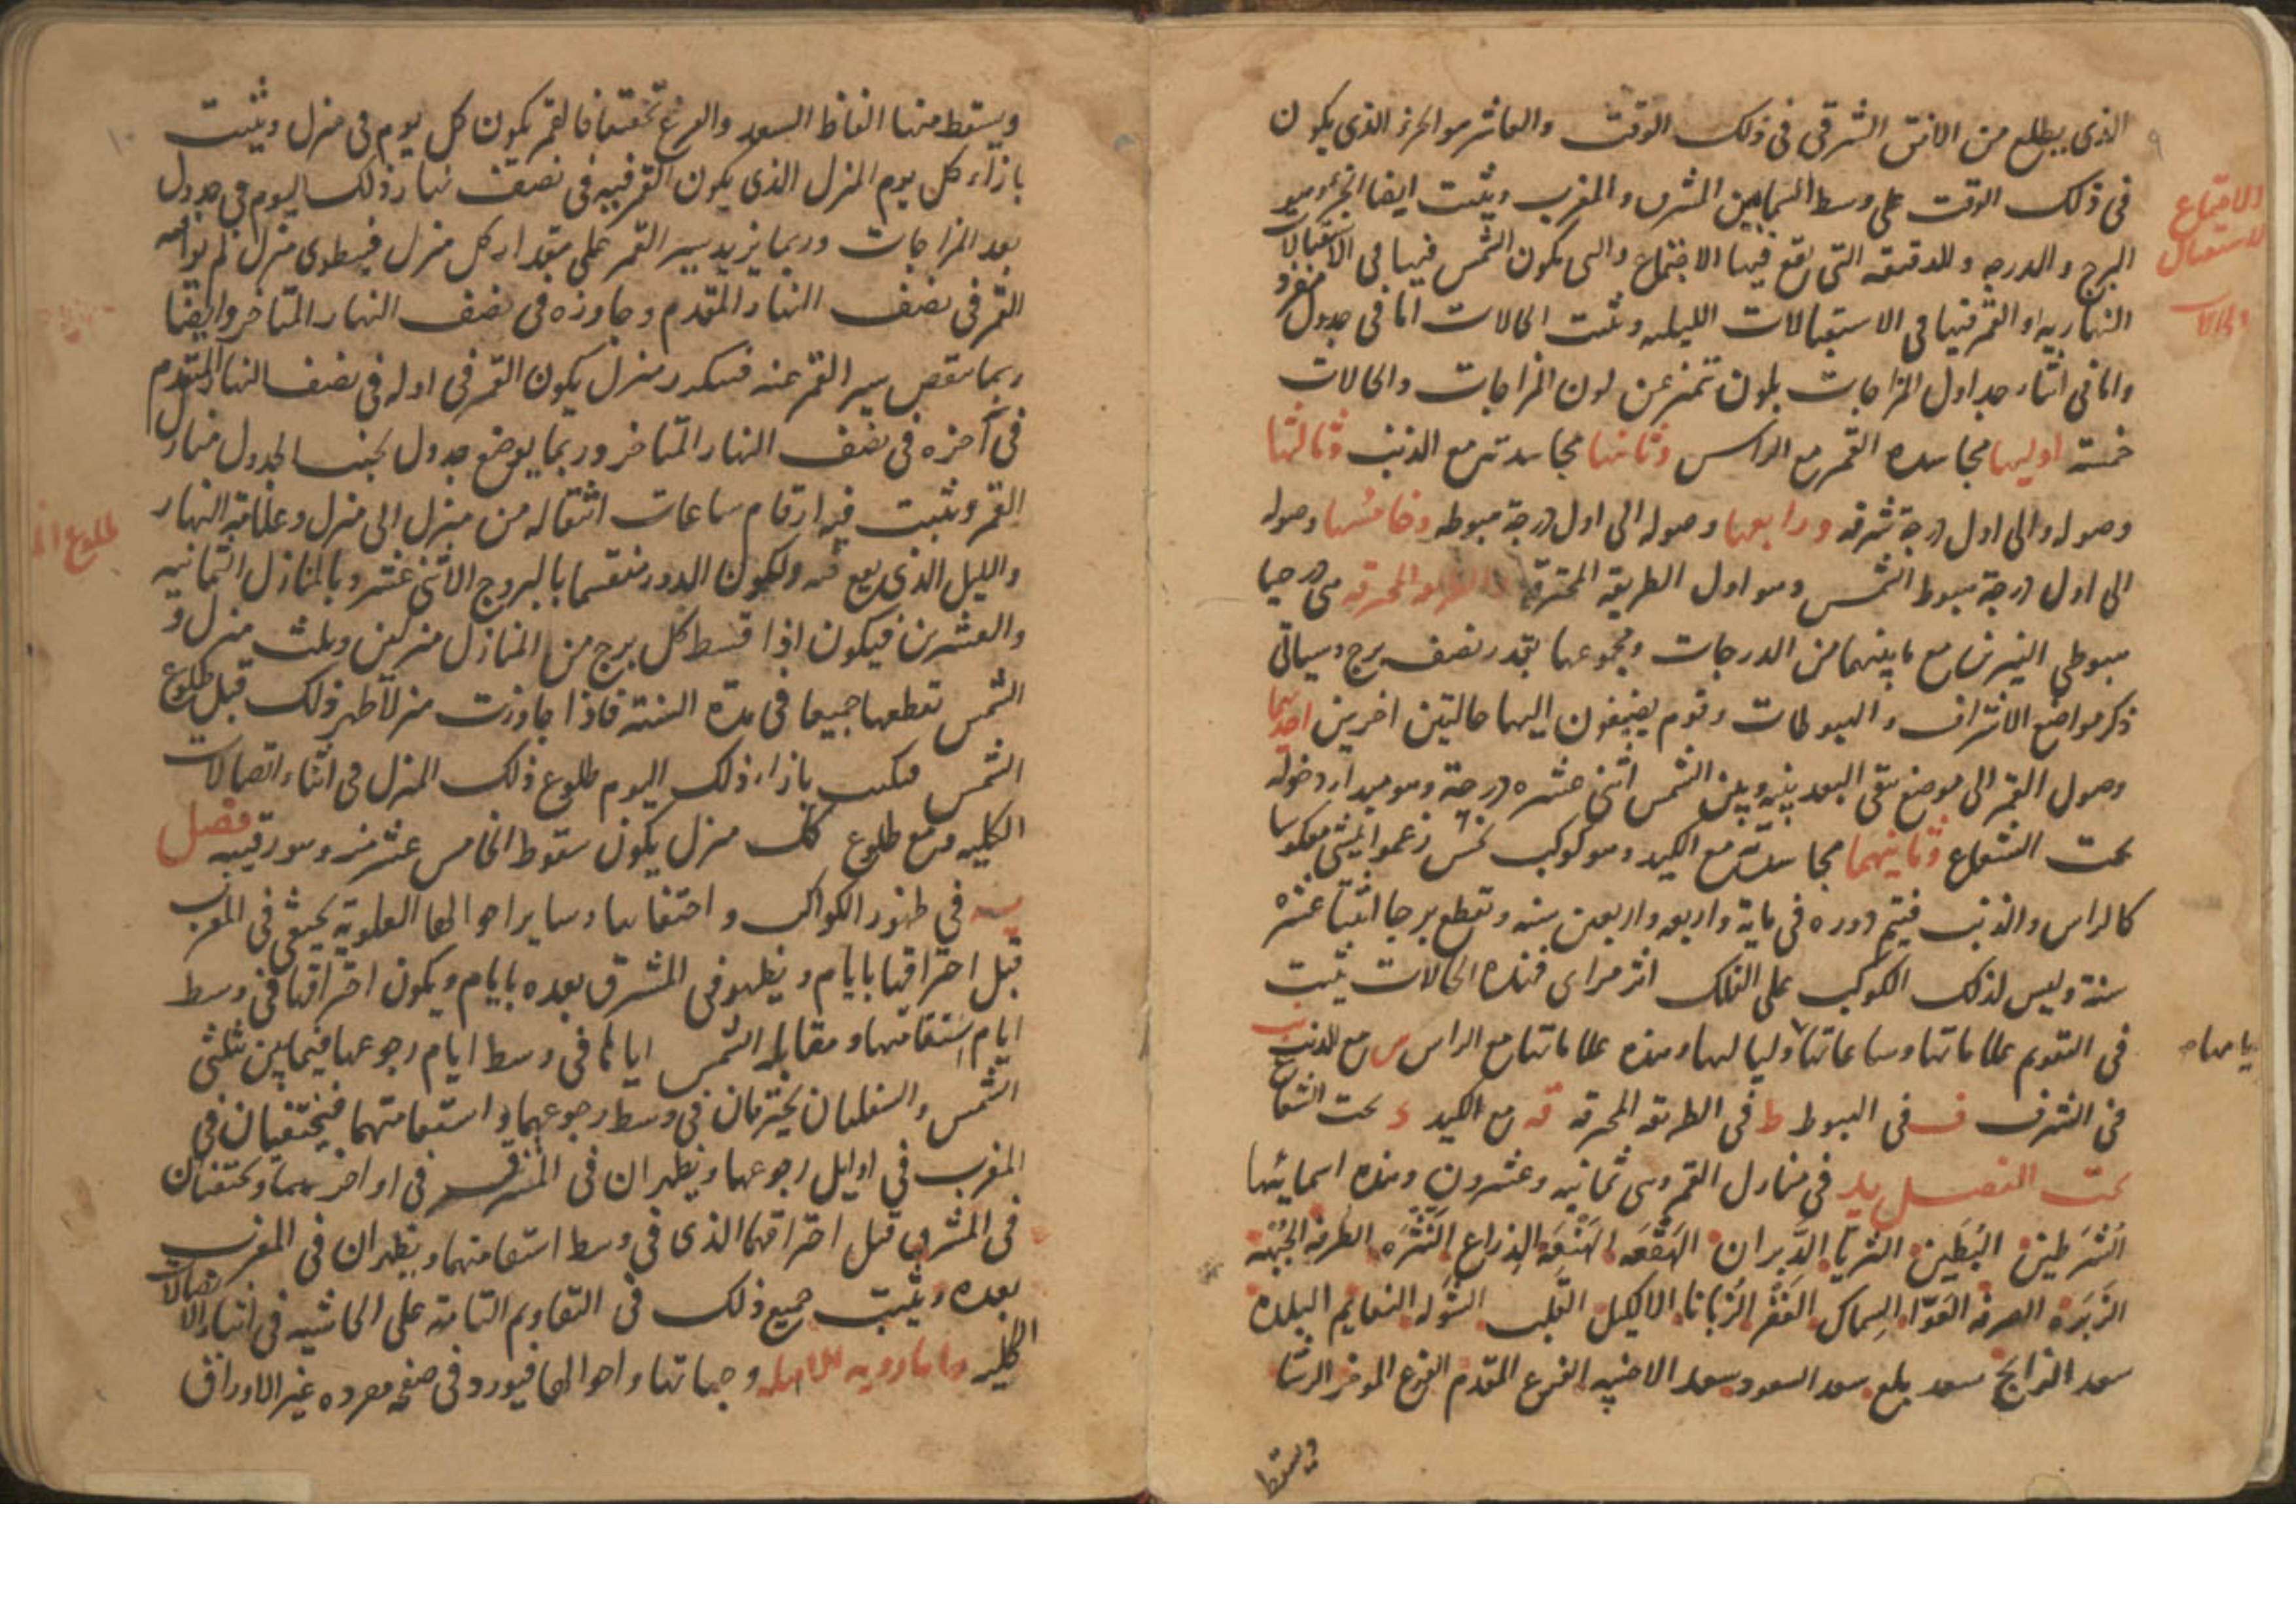 الذى يطلع من الافق الشرقى فى ذلك الوقت والعاشر هو الجزء الذى يكون
فى ذلك الوقت على وسط السما بين المشرق والمغرب ويثبت ايضا الجزء وهو
البرج والدرجه والدقيقه التى يقع فيها الاجتماع والتى يكون الشمس فيها فى الاستقبالات
النهاريه او القمر فيها فى الاستقبالات الليليه ويثبت الحالات اما فى جدول مفرد
واما فى اثناء جداول المزاجات بلون تميز عن لون المزاجات والحالات
خمسة اوليها مجاسده القمر مع الراس وثانيها مجاسدته مع الذنب وثالثها
وصوله الى اول درجة شرفه ورابعها وصوله الى اول درجة هبوطه وخامسها وصوله
الى اول درجة هبوط الشمس وهو اول الطريقه المحترقه والطريقه المحترقه هى درجتا
هبوطى النيرين مع ما بينهما من الدرجات ومجموعها بقدر نصف برج وسياتى
ذكر مواضع الاشراف والهبوطات وقوم يضيفون اليهما حالتين اخريين احديهما
وصول القمر الى موضع يبقى البعد بينه وبين الشمس اثنى عشره درجة وهو مبدا دخوله
تحت الشعاع وثانيهما مجاسدته مع الكيد وهو كوكب نحس زعموا يمشى معكوسا
كالراس والذنب فيتم دوره فى ماية واربعه واربعين سنه ويقطع برجا اثنتا عشره
سنة وليس لذلك الكوكب على الفلك اثر مراى فهذه الحالات يثبت
فى التقويم علاماتها وساعاتها ولياليها وهذه علاماتها مع الراس س مع الذنب ب
فى الشرف ف فى الهبوط ط فى الطريقه المحرقه قه مع الكيد د تحت الشعاع
تحت الفصل يد فى منازل القمر وهى ثمانيه وعشرون وهذه اسمائها
الشرطين البطين الثريا الدبران الهقعه الهنعه الذراع النثره الطرفه الجبهه
الزبره الصرفه العوا السماك الغفر الزبانا الاكليل القلب الشوله النعايم البلده
سعد الذابح سعد بلع سعد السعود سعد الاخبيه الفرغ المقدم الفرغ الموخر الرشا
ويسقط
الاجتماع
الاستقبال
والحالات
۹
ويسقط منها الفاظ السعد والفرغ تخفيفا فالقمر يكون كل يوم فى منزل ويثبت
بازاء كل يوم المنزل الذى يكون القمر فيه فى نصف نهار ذلك اليوم فى جدول
بعد المزاجات وربما يزيد سير القمر على مقدار كل منزل فيطوى منزل لم يوافه
القمر فى نصف النهار المتقدم وجاوزه فى نصف النهار المتاخر وايضا
ربما ينقص سير القمر عنه فيتكرر منزل يكون القمر فى اوله فى نصف النهار المتقدم
فى آخره فى نصف النهار المتاخر وربما يوضع جدول بجنب الجدول منازل
القمر ويثبت فيه ارقام ساعات انتقاله من منزل الى منزل وعلامة النهار
والليل الذى يقع فيه ولكون الدور منقسما بالبروج الاثنى عشر وبالمنازل الثمانيه
والعشرين فيكون اذا قسط كل برج من المنازل منزلين وثلث منزل و
الشمس تقطعها جميعا فى مدة السنة فاذا جاوزت منزلا ظهر ذلك قبل طلوع
الشمس فيكتب بازاء ذلك اليوم طلوع ذلك المنزل فى اثناء اتصالات
الكليه ومع طلوع كل منزل يكون سقوط الخامس عشر منه وهو رقيبه فصل
يه فى ظهور الكواكب واختفائها وساير احوالها العلوية يختفى فى المغرب
قبل احتراقها بايام ويظهر فى المشرق بعده بايام ويكون احتراقها فى وسط
ايام استقامتها ومقابلة الشمس اياها فى وسط ايام رجوعها فيما بين تثليثى
الشمس والسفليان يحترقان فى وسط رجوعهما واستقامتهما فيختفيان فى
المغرب فى اوايل رجوعهما ويظهران فى المشرق فى اواخرهما ويختفيان
فى المشرق قبل احتراقهما الذى فى وسط استقامتهما ويظهران فى المغرب
بعده ويثبت جميع ذلك فى التقاويم التامة على الحاشيه فى اثناء الاتصالات
الكليه واما رويه الاهله وجهاتها واحوالها فيورد فى صفحه مفرده غير الاوراق
۱۰